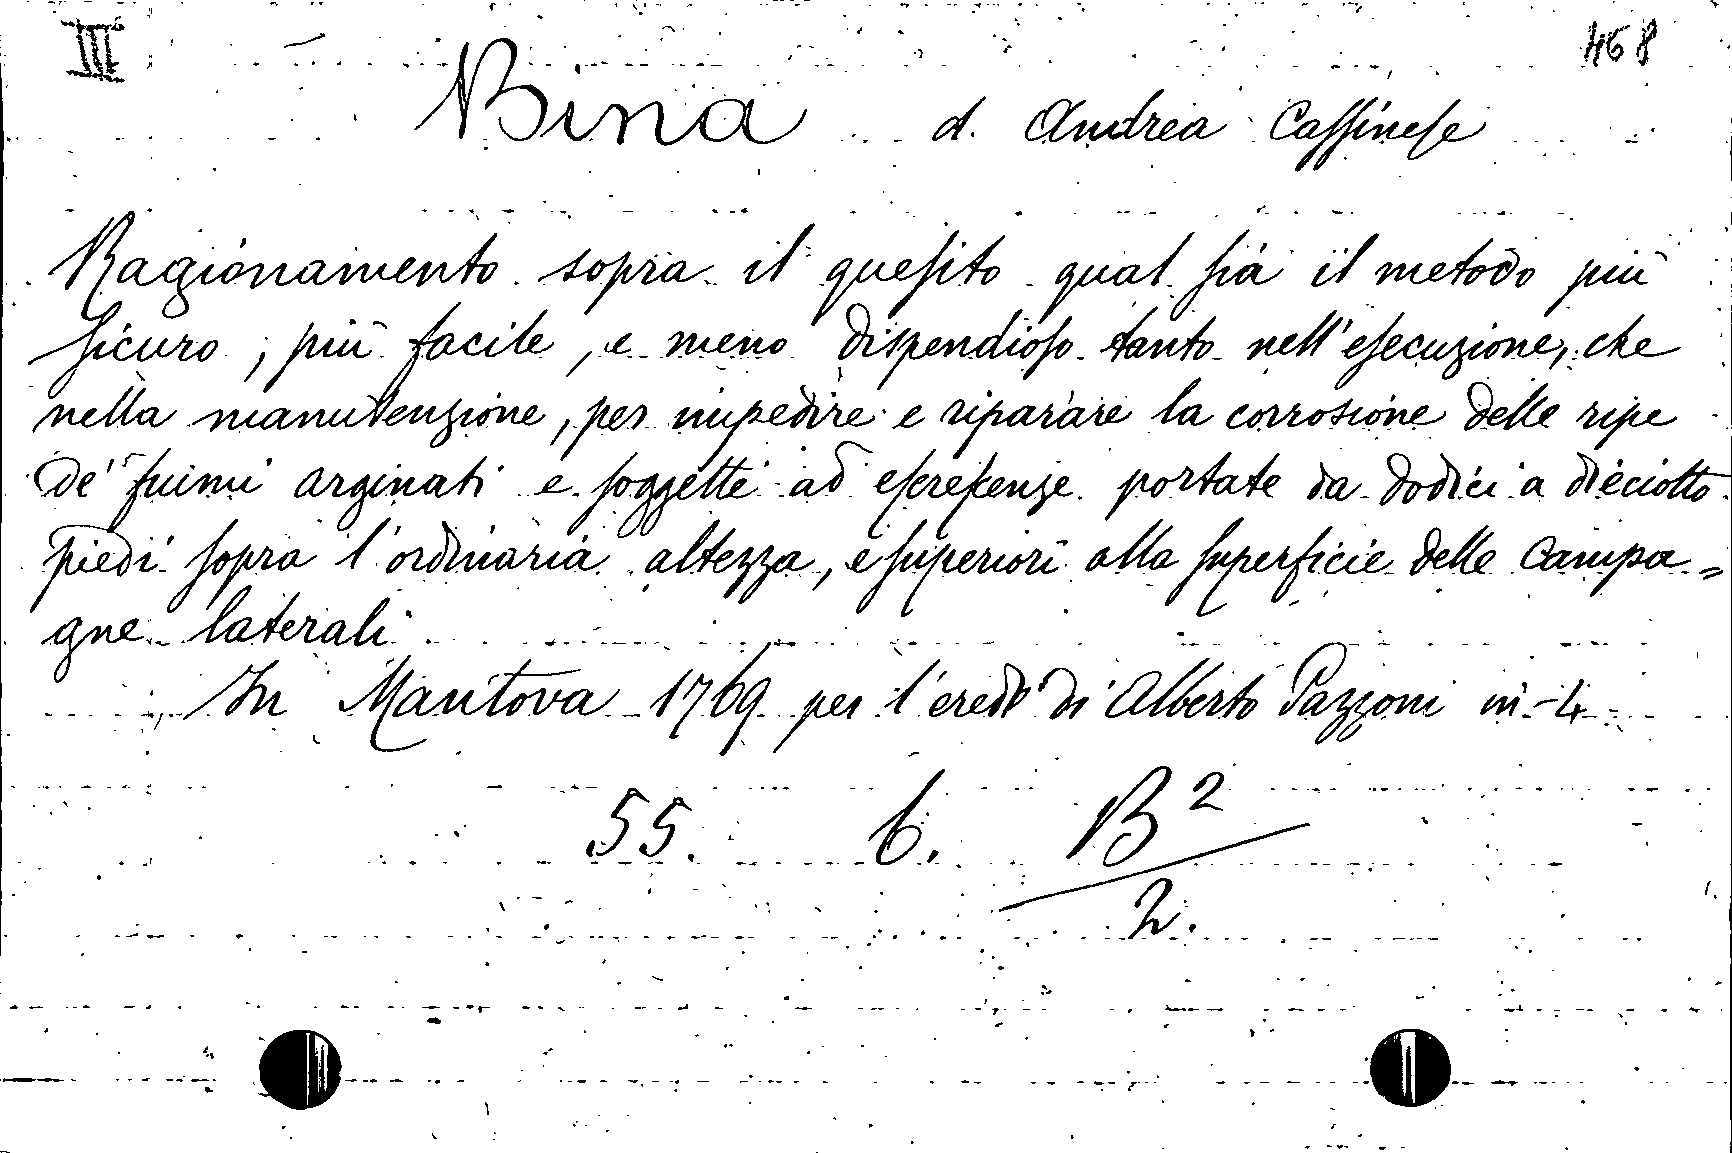 III 468
Bina d. Andrea Cassinese
Ragionamento sopra il quesito qual sia il metodo più
sicuro, più facile, e meno dispendioso tanto nell'esecuzione, che
nella manutenzione, per impedire e riparare la corrosione delle ripe
de' fuimi arginati e soggetti ad escrescenze portate da dodici a dieciotto
piedi sopra l'ordinaria altezza, e superiori alla superficie delle campa=
gne laterali
In Mantova 1769 per l'erede di Alberto Pazzoni in-4
55. b. B²
2.